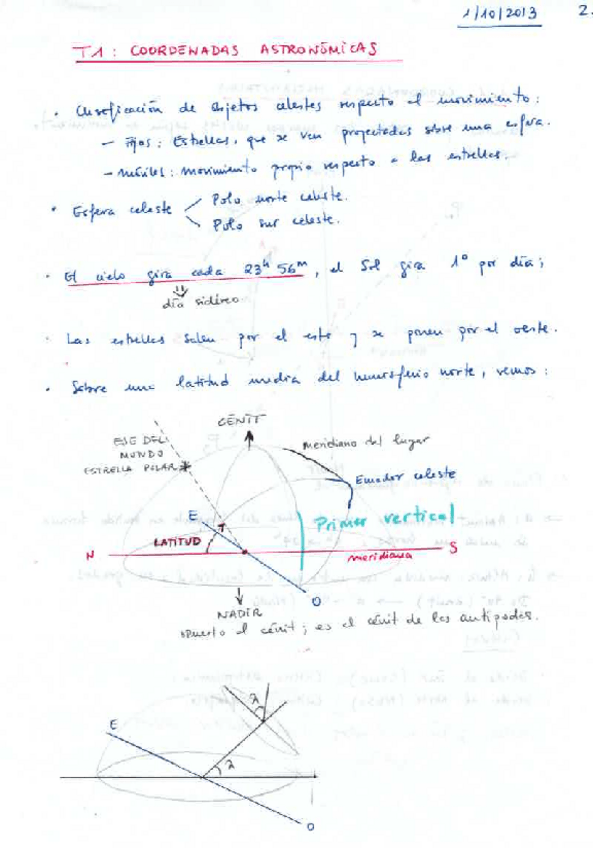 1/10/2013 2.
T1: COORDENADAS ASTRONÓMICAS
• Clasificación de objetos celestes respecto al movimiento:
– Fijos: Estrellas, que se ven proyectadas sobre una esfera.
– Móviles: movimiento propio respecto a las estrellas.
• Esfera celeste
Polo norte celeste.
Polo sur celeste.
• El cielo gira cada 23h 56m, el Sol gira 1º por día;
día sidéreo
• Las estrellas salen por el este y se ponen por el oeste.
• Sobre una latitud media del hemisferio norte, vemos:
CÉNIT
EJE DEL
MUNDO
ESTRELLA POLAR
Meridiano del lugar
Ecuador celeste
E
Primer vertical
LATITUD
N
S
meridiana
O
NADIR
opuesto al cénit; es el cénit de los antípodas.
λ
E
λ
O